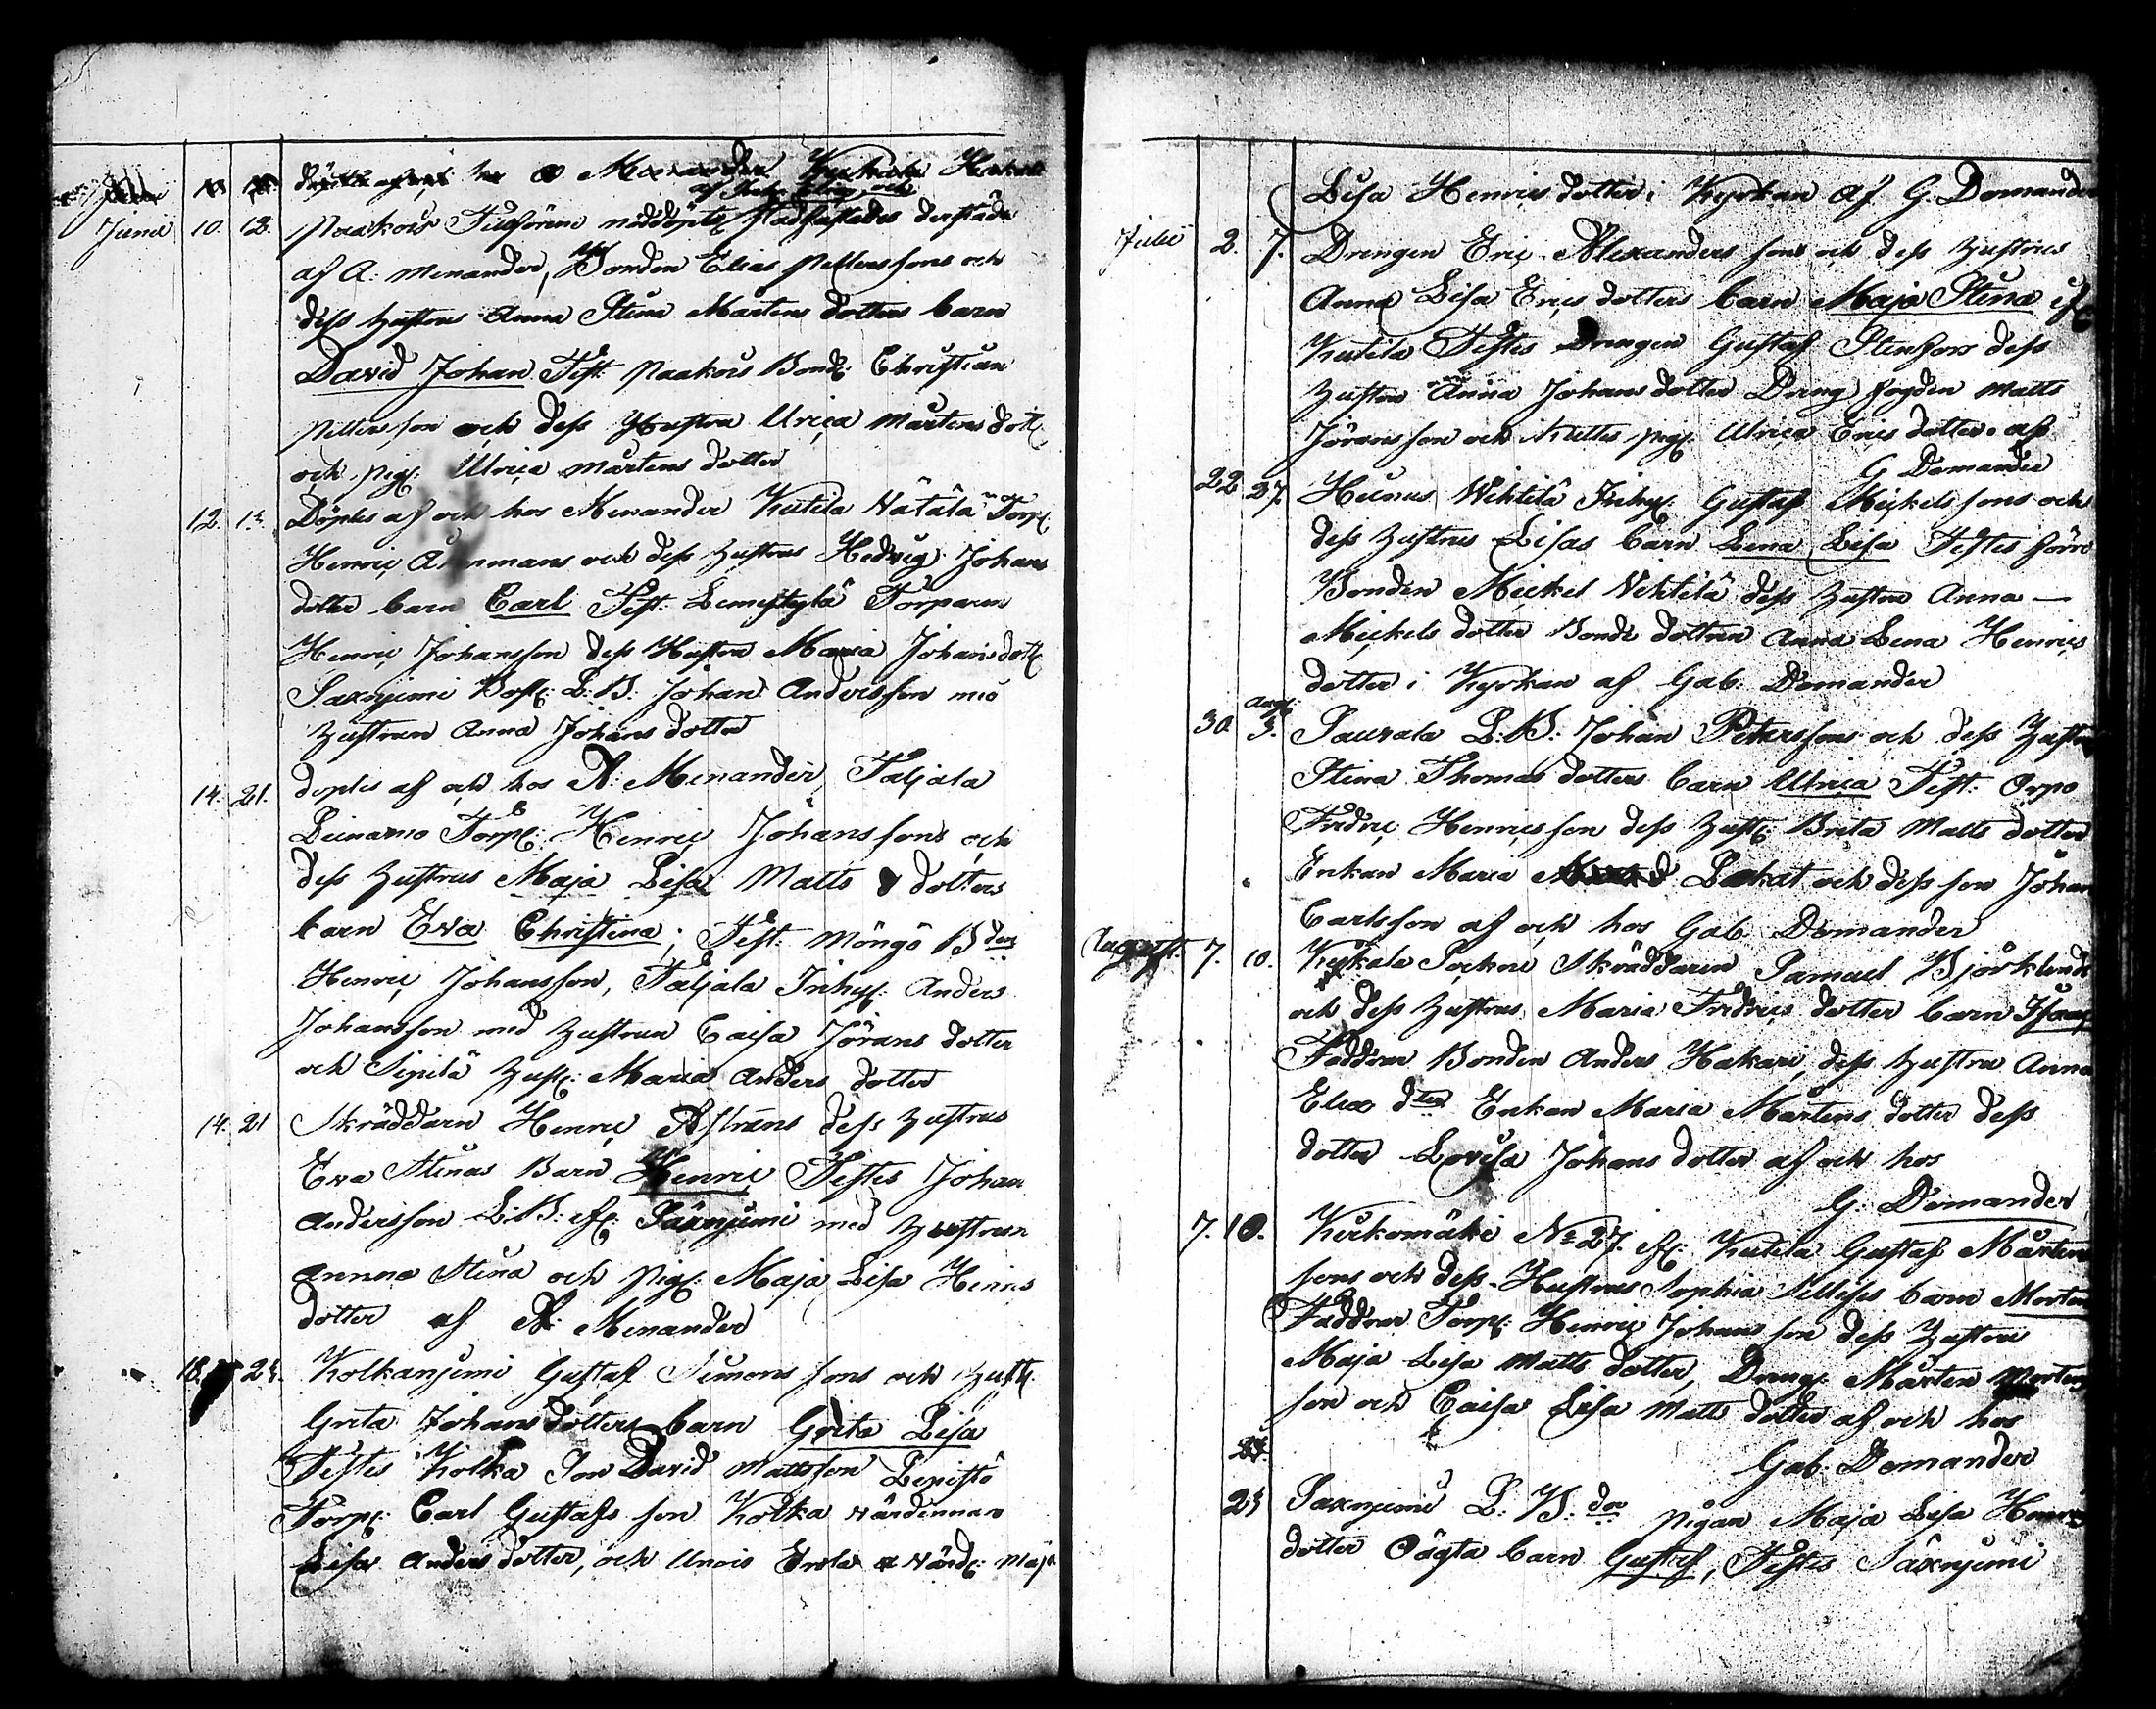 A Menander
af och
Junii 10. 12. Paakois Tillförene nöddöpte Stadfästades derstädes
af A: Menander, Bonden Elias Pettersons och
dess hustrus Anna Stina Mårtens dotters barn
David Johan Test: Paakois Bond: Christian
Petterson och dess Hustru Ulrica Mårtens dott:
och pig: Ulrica Mårtens dotter
12. Döptes af och hos Menander Kutila Nätälä Torp:
Henric mans och dess hustrus Hedvig Johans
dotter barn Carl Test: Torparen
Henric Johansson dess Hustru Maria Johans dott:
Saxnjemi L: B: Johan Andersson med
hustrun Anna Johans dotter
14. 21. döptes af och hos A: Menander, Taljala
Torp: Henric Johanssons och
dess hustrus Maja Lisa Matts dotters
barn Eva Christina; Test: Möngö Bden
Henric Johansson, Taljala Inhys: Anders
Johansson med hustrun Caisa Jörans dotter
och Sipilä hust: Maria Anders dotter
14. 21 Skräddarn Henric Åstrans dess hustrus
Eva Stinas Barn Henric Testes Johan
Andersson L: B: Säxnjemi med hustrun
Annna Stina och Pig: Maja Lisa Henrics
dotter af A: Menander
18. 24. Kolkanjemi Gustaf Simons sons och hust:
Greta Johans dotters barn Greta Lisa
Testes Kolka Son David Mattsson Lepistö
Torp: Carl Gustafs son Kolka värdinnan
Lisa Anders dotter, och Unois Enola värd: Maja
Lisa Henrics dotter i Kyrkan af G: Domander
Julii 2. 7. Drengen Eric Alexanders sons och dess hustrus
Anna Lisa Erics dotters barn Maja Stina
Kutila Testes Drengen Gustaf Stenfors dess
hustru Anna Johans dotter Dreng fogden Matts
Jöransson och pig: Ulrica Erics dotter af
G Domander
22 27. Heinus Wihtilä Inhys: Gustaf Mickels sons och
dess hustrus Lisas barn Leena Lisa Testes förre
Bonden Mickel Vihtilä dess hustru Anna —
Mickels dotter Bonde dottren Anna Lena Henrics
dotter i Kyrkan af Gab: Domander
Aug:
30. 3. Sauvala L: B: Johan Peterssons och dess hustrus
Stina Thomas dotters barn Ulrica Test: Orpo
Fredric Henricsson dess hust: Brita Matts dotter
Enkan Maria Lokat och dess son Johan
Carlsson af och hos Gab: Domander
August. 7. 10. Kykala Sockne Skräddaren Samuel Björklunds
och dess hustrus Maria Fredrics dotter barn Isaac
Faddrar Bonden Anders Hakari, dess hustru Anna
Elia dter Enkan Maria Mårtens dotter dess
dotter Lovisa Johans dotter af och hos
G. Domander
7. 10. Kuikomäki No 27. Kutila Gustaf Mårtens
sons och dess Hustrus Sophia barn Morten
Faddrar Torp: Henric Johans son dess hustru
Maja Lisa Matts dotter, Dreng: Mårten Mortens
son och Caisa Lisa Matts dotter af och hos
Gab: Domander
24 Saxnjemi L: B: dor pigan Maja Lisa Henrics
dotter Oägta barn Gustaf, Testes Säxnjemi